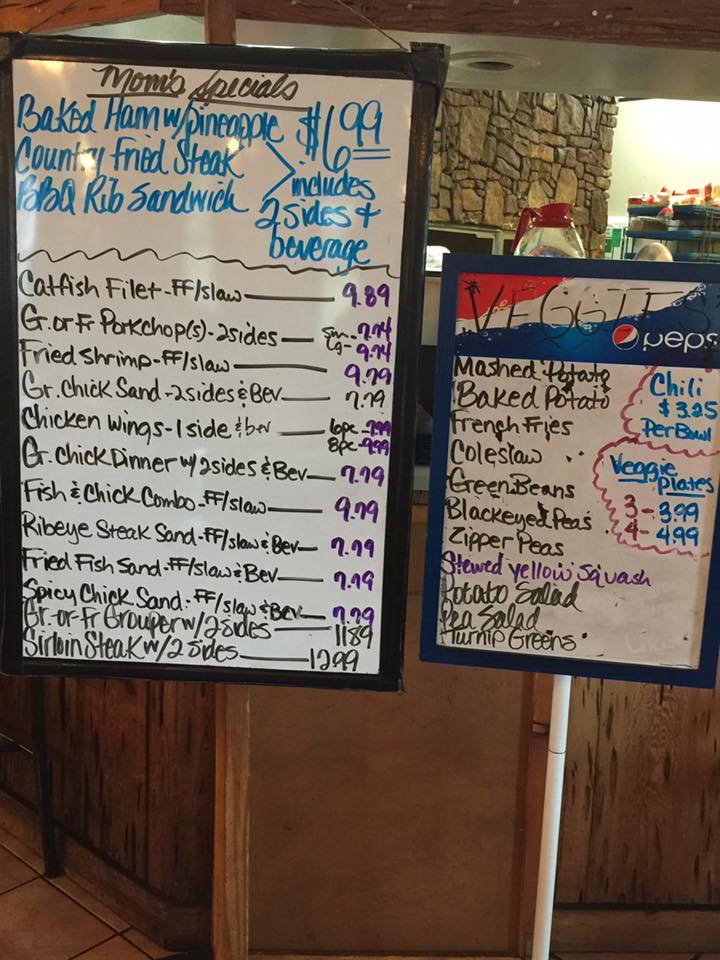 Mom's Specials
Baked Ham w/pineapple $6.99
Country Fried Steak
BBQ Rib Sandwich
includes
2 sides +
beverage
Catfish Filet - FF/slaw 9.89
Gr. or Fr Porkchop(s) - 2 sides Sm - 7.74
Lg - 9.74
Fried Shrimp - FF/slaw 9.79
Gr. Chick Sand - 2 sides & Bev 7.79
Chicken Wings - 1 side & bev 6pc - 7.99
8pc - 9.99
Gr. Chick Dinner w/ 2 sides & Bev 7.79
Fish & Chick Combo - FF/slaw 9.79
Ribeye Steak Sand - FF/slaw & Bev 7.79
Fried Fish Sand - FF/slaw & Bev 7.79
Spicy Chick Sand - FF/slaw & Bev 7.79
Gr. or Fr Grouper w/ 2 sides 11.89
Sirloin Steak w/ 2 sides 12.99
VEGGIES
pepsi
Mashed Potato
Baked Potato
French Fries
Coleslaw
Green Beans
Blackeyed Peas
Zipper Peas
Stewed yellow Squash
Potato Salad
Pea Salad
Turnip Greens
Chili
$3.25
Per Bowl
Veggie
Plates
3 - 3.99
4 - 4.99